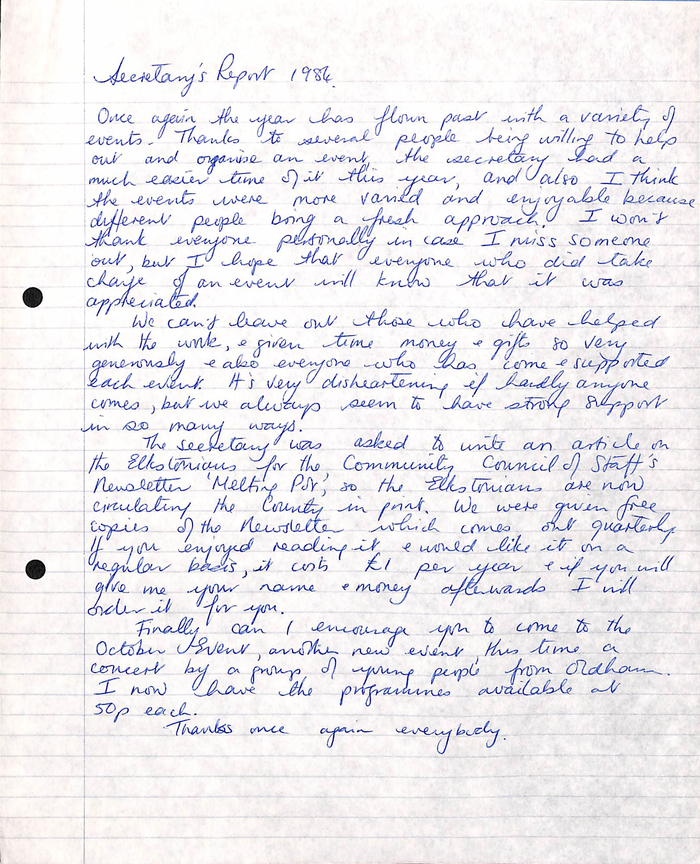 Secretary's Report 1984.
Once again the year has flown past with a variety of
events. Thanks to several people being willing to help
out and organise an event, the secretary had a
much easier time of it this year, and also I think
the events were more varied and enjoyable because
different people bring a fresh approach. I won't
thank everyone personally in case I miss someone
out, but I hope that everyone who did take
charge of an event will know that it was
appreciated.
We can't leave out those who have helped
with the work, & given time money & gifts so very
generously & also everyone who has come & supported
each event. It's very disheartening if hardly anyone
comes, but we always seem to have strong support
in so many ways.
The secretary was asked to write an article on
the Elkstonians for the Community Council of Staff's
Newsletter 'Melting Pot', so the Elkstonians are now
circulating the County in print. We were given free
copies of the Newsletter which comes out quarterly
If you enjoyed reading it & would like it on a
regular basis, it costs £1 per year & if you will
give me your name & money afterwards I will
order it for you.
Finally can I encourage you to come to the
October Event, another new event, this time a
concert by a group of young people from Oldham.
I now have the programmes available at
50p each.
Thanks once again everybody.